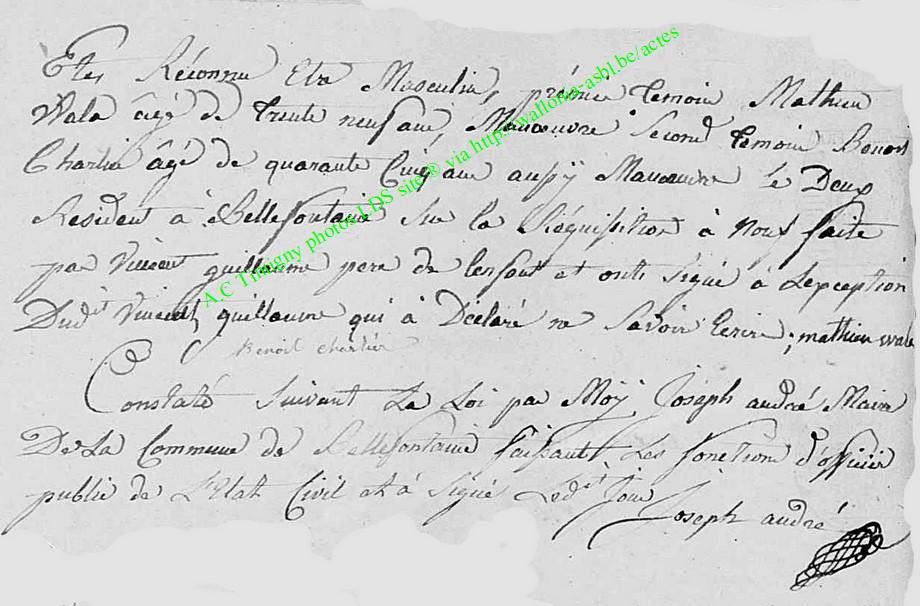 Etes Réconnu Etre Masculin, prémié temoin Mathieu
Wala âgé de trente neuf ans, Manœuvre Second temoin Benoit
Charlier âgé de quarante Cinq ans aussÿ Manœuvre Le Deux
Resident à Bellefontaine Sur la Réquisition à Nous faite
par Vincent guillaume pere de lenfant et onts Signé à Lexception
Dudit Vincent guillaume qui à Déclaré ne Savoir Ecrire; mathieu wala
Benoit charlier
Constaté Suivant La Loi par Moÿ Joseph andré Maire
De La Commune de Bellefontaine faisant Les fonction d'officier
public de L'Etat Civil et à Signé Ledit Jour
Joseph andré
A.C Tintigny photos LDS site® via http:wallonia-asbl.be/actes